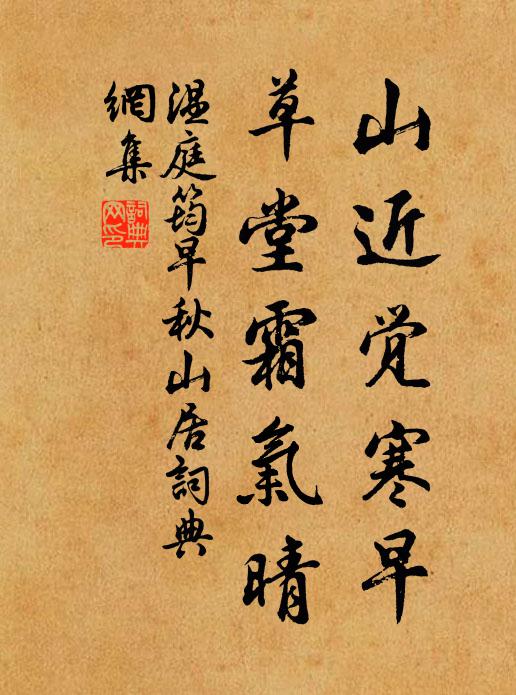 山近觉寒早
草堂霜氣晴
温庭筠早秋山居詞典
網集
詞典
网印